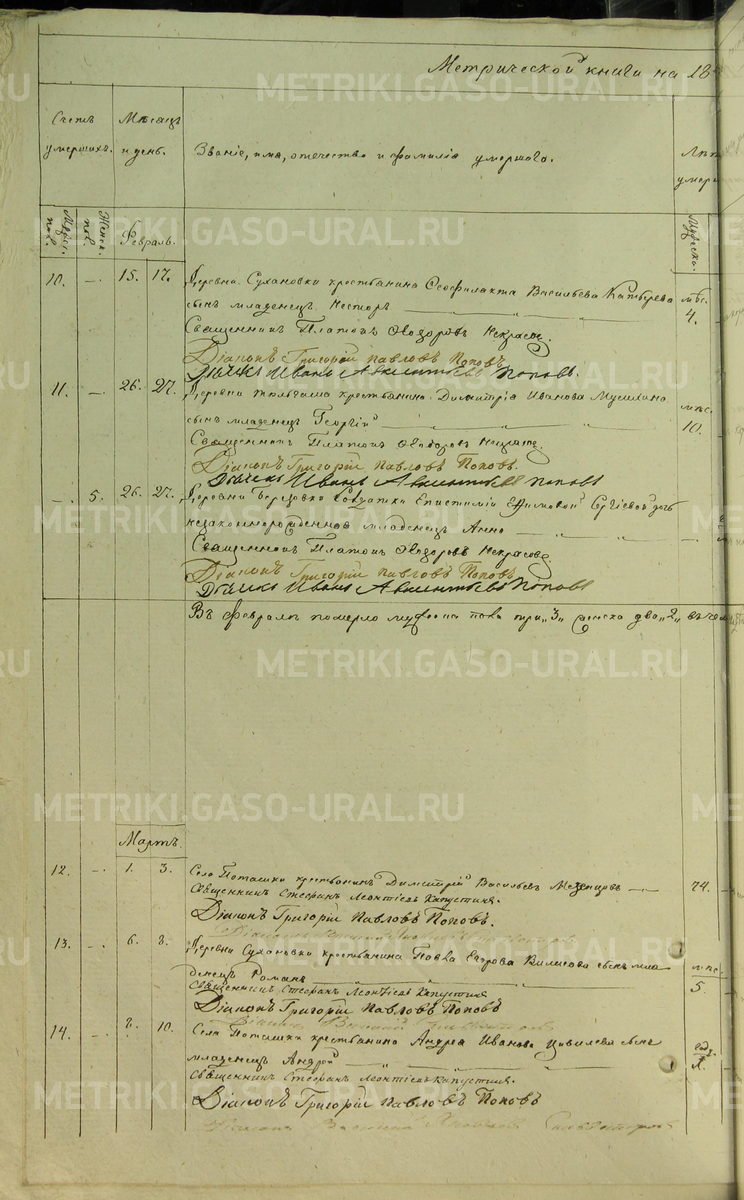 Метрической книги на 18
Счетъ умершихъ.
Мѣсяцъ и день.
Званіе, имя, отечество и фамилія умершаго.
Лѣт
умер
Мужес. пол.
Женск. пол.
Февраль.
Мужеска
10. — 15. 17. Деревни Сухановки крестьянина Феофилакта Васильева
мѣс. 4.
сынъ младенецъ Несторъ
Священникъ Платонъ Ѳеодоровъ Некрасовъ.
Діаконъ Григорій Павловъ Поповъ
Дьячекъ Иванъ Авксентьевъ Поповъ.
11. — 26. 27. Деревни крестьянина Димитрія Иванова
мѣс. 10.
сынъ младенецъ Георгій
Священникъ Платонъ Ѳеодоровъ Некрасовъ.
Діаконъ Григорій Павловъ Поповъ.
Дьячекъ Иванъ Авксентьевъ Поповъ
— 5. 26. 27. Деревни Березовки Солдатки Епистиміи Ефимовой Сергіевой дочь
незаконнорожденная младенецъ Анна
Священникъ Платонъ Ѳеодоровъ Некрасовъ
Діаконъ Григорій Павловъ Поповъ
Дьячекъ Иванъ Авксентьевъ Поповъ
Въ Февралѣ померло мужеска пола три „3„ женска два „2„
Мартъ.
12. — 1. 3. Села Поташки крестьянинъ Димитрій Васильевъ
74.
Священникъ Стефанъ Леонтіевъ Капустинъ.
Діаконъ Григорій Павловъ Поповъ.
13. — 6. 8. Деревни Сухановки крестьянина Павла Егорова сынъ мла
мѣс. 5.
денецъ Романъ
Священникъ Стефанъ Леонтіевъ Капустинъ
Діаконъ Григорій Павловъ Поповъ
14. — 8. 10. Села Поташки крестьянина Андрея Иванова сынъ
год.
младенецъ Андрей
Священникъ Стефанъ Леонтіевъ Капустинъ.
Діаконъ Григорій Павловъ Поповъ
METRIKI.GASO-URAL.RU